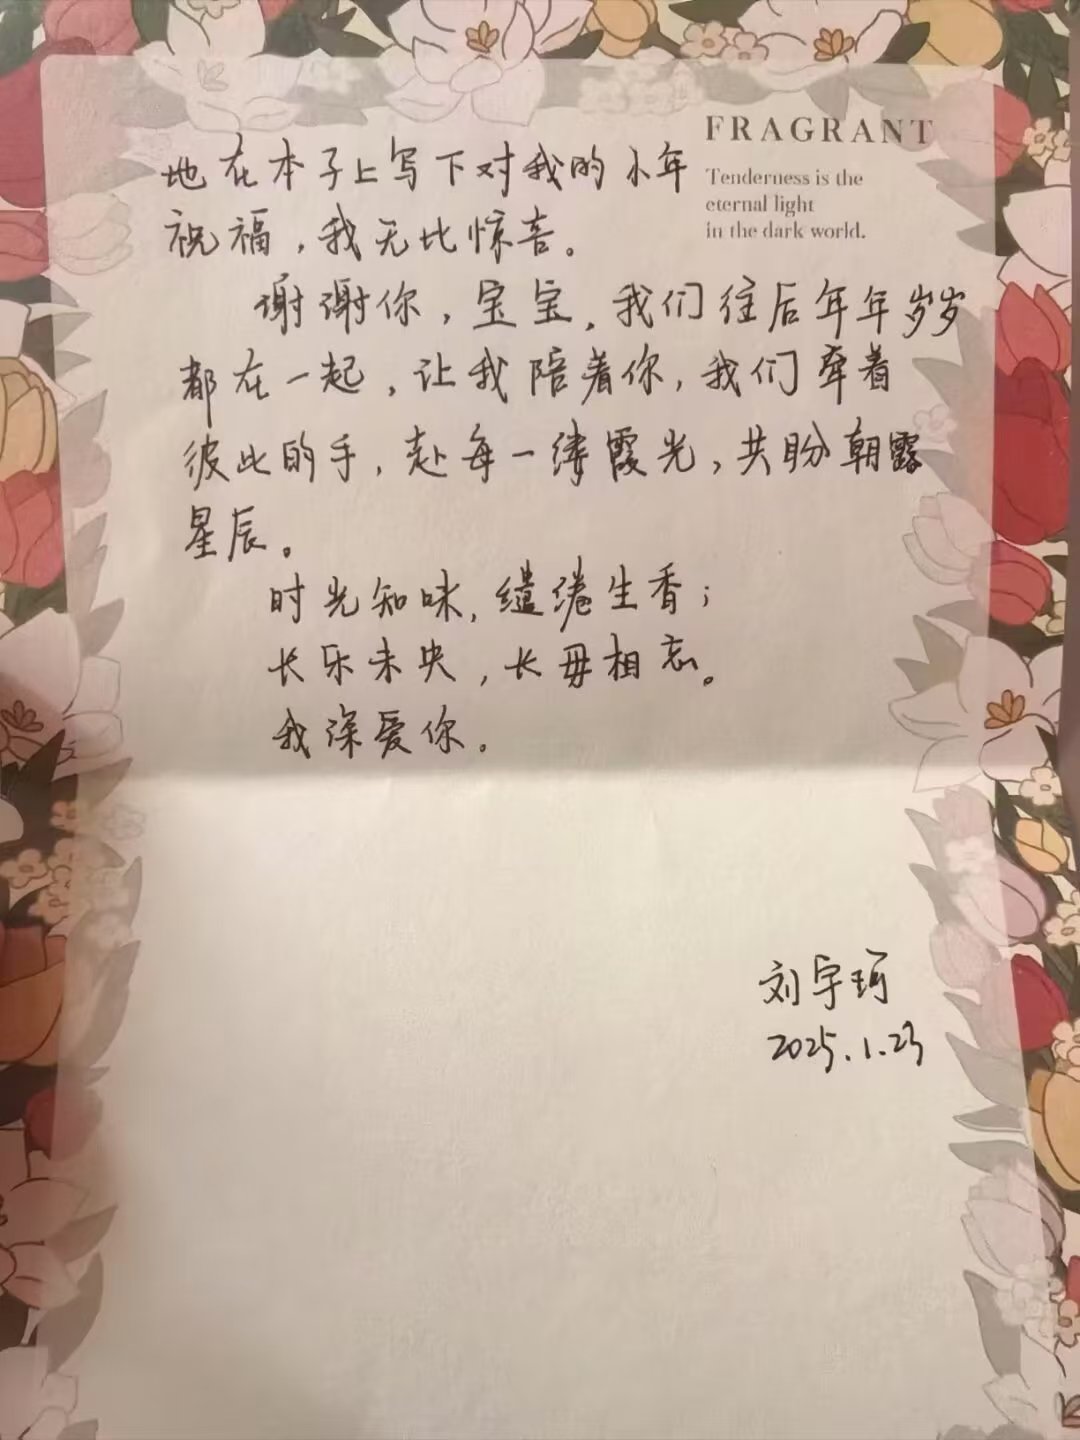 FRAGRANT
Tenderness is the
eternal light
in the dark world.
地在本子上写下对我的小年
祝福，我无比惊喜。
谢谢你，宝宝，我们往后年年岁岁
都在一起，让我陪着你，我们牵着
彼此的手，赴每一缕霞光，共盼朝露
星辰。
时光知味，缱绻生香；
长乐未央，长毋相忘。
我深爱你。
刘宇珂
2025.1.23